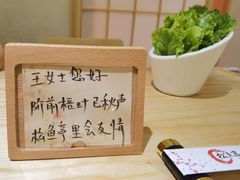 王女士您好
阶前梧叶已秋声
松鱼亭里会友情